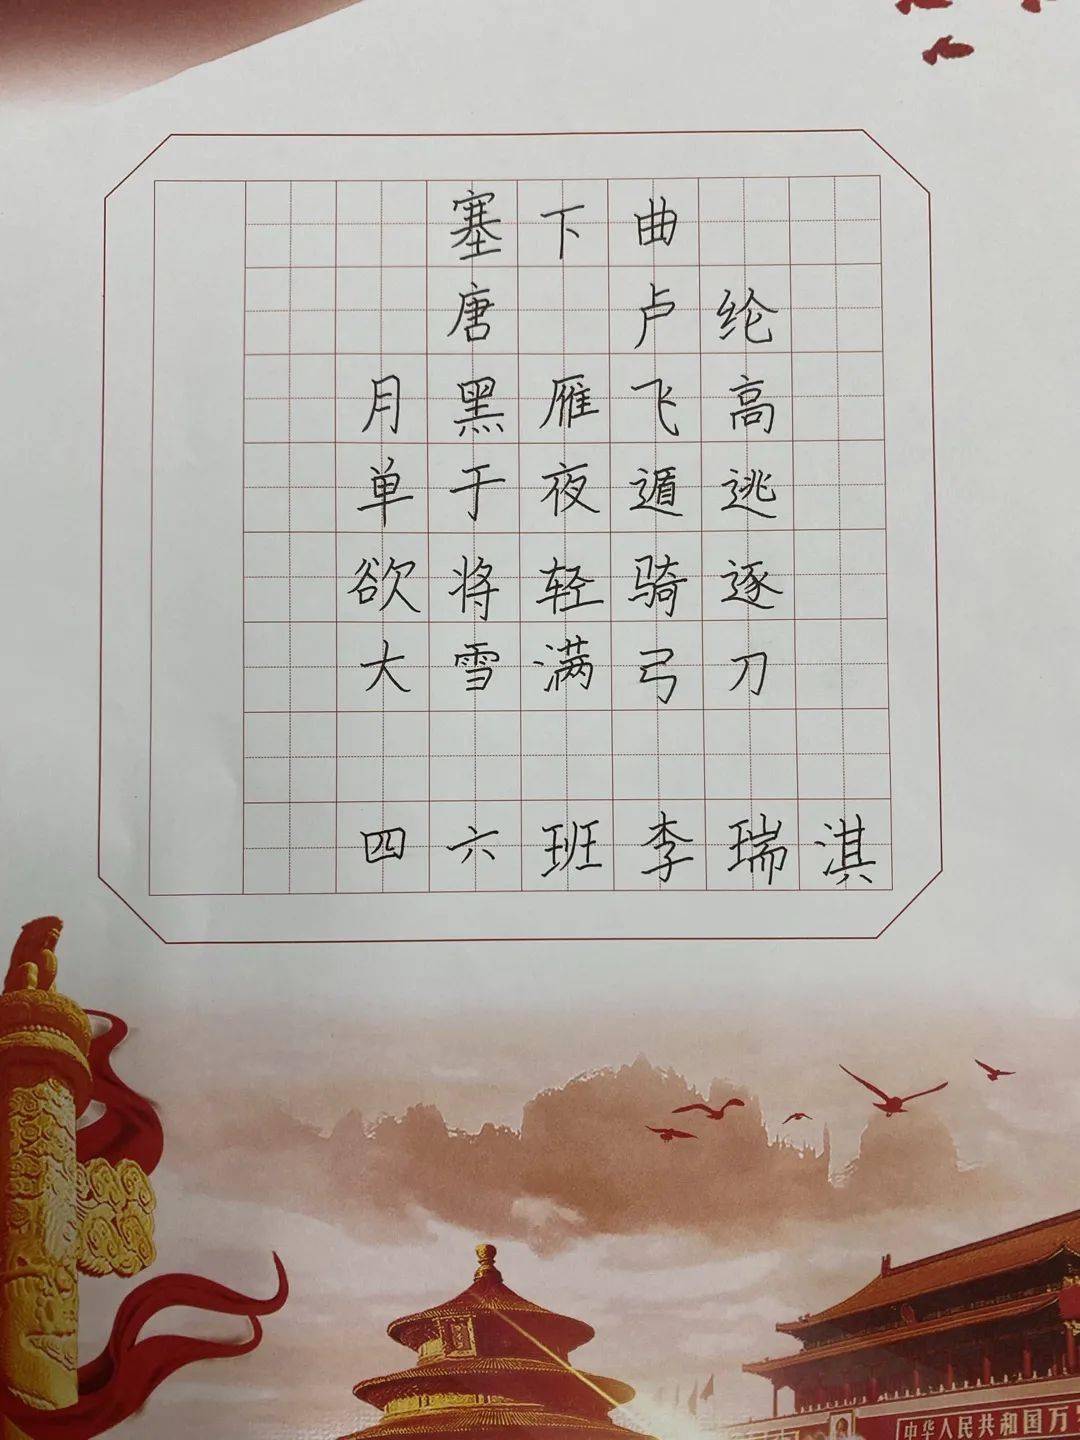 塞下曲
唐 卢纶
月黑雁飞高
单于夜遁逃
欲将轻骑逐
大雪满弓刀
四六班李瑞淇
中华人民共和国万